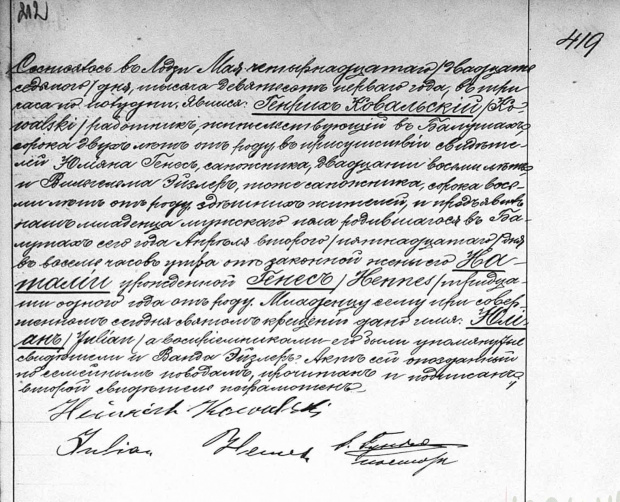 212
419
Состоялось въ Лодзи Мая четырнадцатаго/двадцать
седьмаго/дня, тысяча девятьсотъ перваго года, въ три
часа по полудни. Явился: Генрихъ Ковальскій /Ko-
walski/ работникъ, жительствующій въ Балутахъ
сорока двухъ лѣтъ отъ роду въ присутствіи свидѣте-
лей Юліяна Генесъ, сапожника, двадцати восьми лѣтъ
и Вильгельма Эйзлеръ, тоже сапожника, сорока вось-
ми лѣтъ отъ роду, здѣшнихъ жителей, и предъявилъ
намъ младенца мужскаго пола родившагося въ Ба-
лутахъ сего года Апрѣля втораго/пятнадцатаго/дня
въ восемь часовъ утра отъ законной жены его На-
таліи урожденной Генесъ /Hennes/ тридца-
ти одного года отъ роду. Младенцу сему при совер-
шенномъ сегодня святомъ крещеніи дано имя: Юлі-
анъ /Julian/ а воспріемниками его были упомянутые
свидѣтели и Ванда Эйзлеръ. Актъ сей опоздавшій
по семейнымъ поводамъ, прочитанъ и подписанъ,
второй свидѣтель неграмотенъ.
Heinrich Kowalski
Julian Hennes
пасторъ